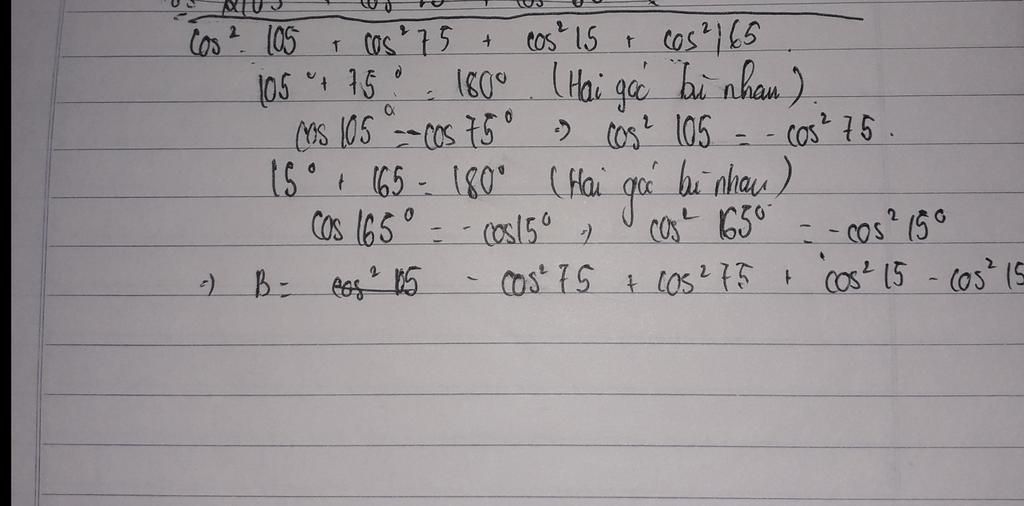 cos² 105 + cos² 75 + cos² 15 + cos² 165
105° + 75° = 180° (Hai góc bù nhau).
cos 105° = -cos 75° => cos² 105 = -cos² 75.
15° + 165 = 180° (Hai góc bù nhau)
cos 165° = -cos15° => cos² 165° = -cos² 15°
=> B = - cos² 75 + cos² 75 + cos² 15 - cos² 15